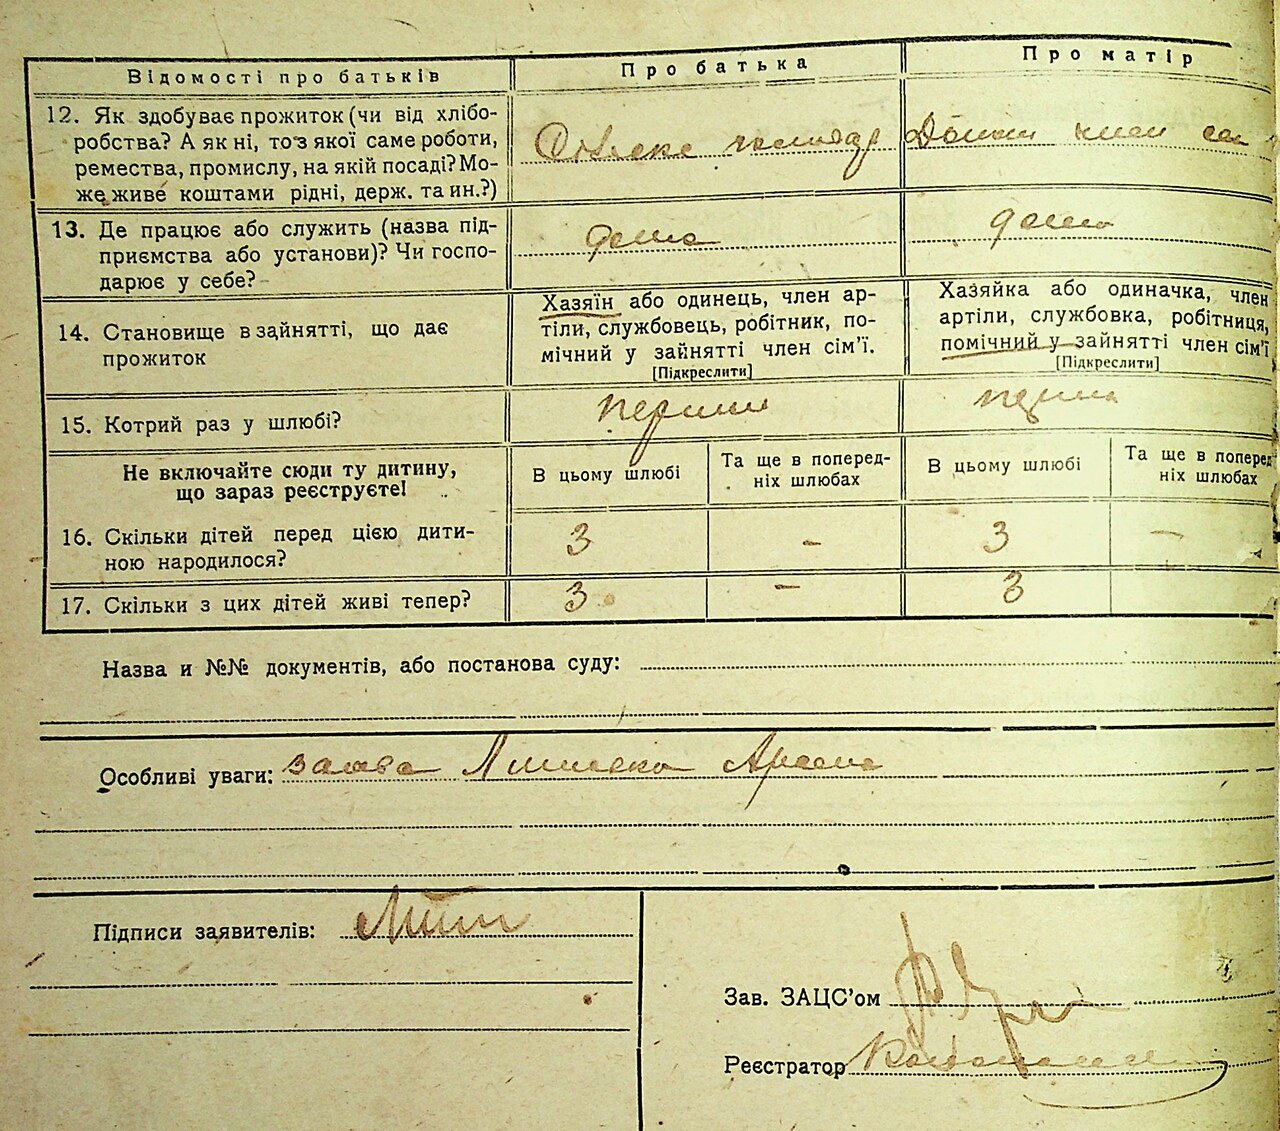 Відомості про батьків
Про батька
Про матір
12. Як здобуває прожиток (чи від хлібо-
робства? А як ні, то з якої саме роботи,
ремества, промислу, на якій посаді? Мо-
же живе коштами рідні, держ. та ин.?)
господар
член
13. Де працює або служить (назва під-
приємства або установи)? Чи госпо-
дарює у себе?
дома
дома
14. Становище в зайнятті, що дає
прожиток
Хазяїн або одинець, член ар-
тіли, службовець, робітник, по-
мічний у зайнятті член сім'ї.
[Підкреслити]
Хазяйка або одиначка, член
артіли, службовка, робітниця,
помічний у зайнятті член сім'ї
[Підкреслити]
15. Котрий раз у шлюбі?
перший
перша
Не включайте сюди ту дитину,
що зараз реєструєте!
В цьому шлюбі
Та ще в поперед-
ніх шлюбах
В цьому шлюбі
Та ще в поперед
ніх шлюбах
16. Скільки дітей перед цією дити-
ною народилося?
3
-
3
-
17. Скільки з цих дітей живі тепер?
3
-
3
Назва и №№ документів, або постанова суду:
Особливі уваги: заява
Підписи заявителів:
Зав. ЗАЦС'ом
Реєстратор